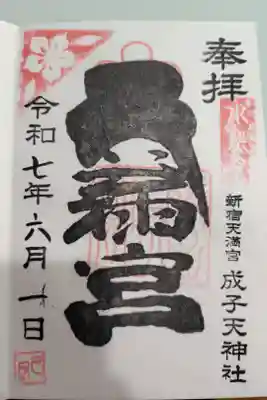 奉拝
新宿天満宮 成子天神社
天満宮
令和七年六月 日